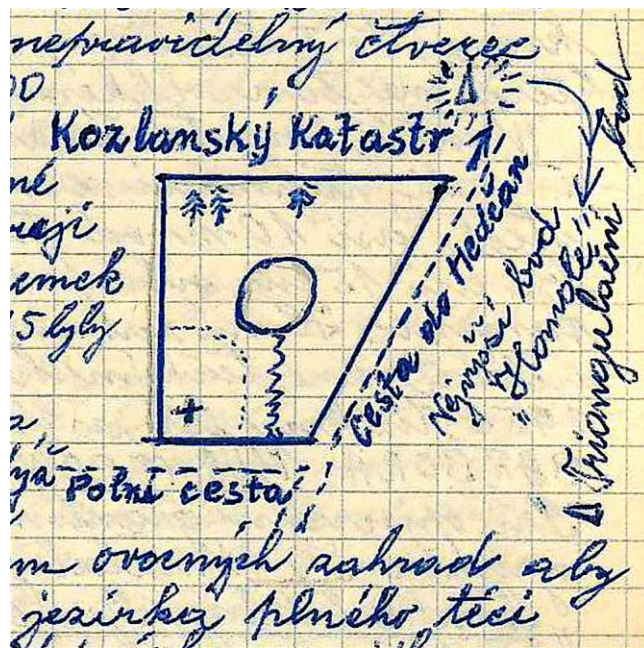 nepravidelný čtverec
00
Kozlanský Katastr
né
emek
5 byly
Cesta do Hedčan
Nejvyšší bod
„Homole"
Δ Triangulační bod
Polní cesta
m ovocných zahrad aby
jezírka plného téci